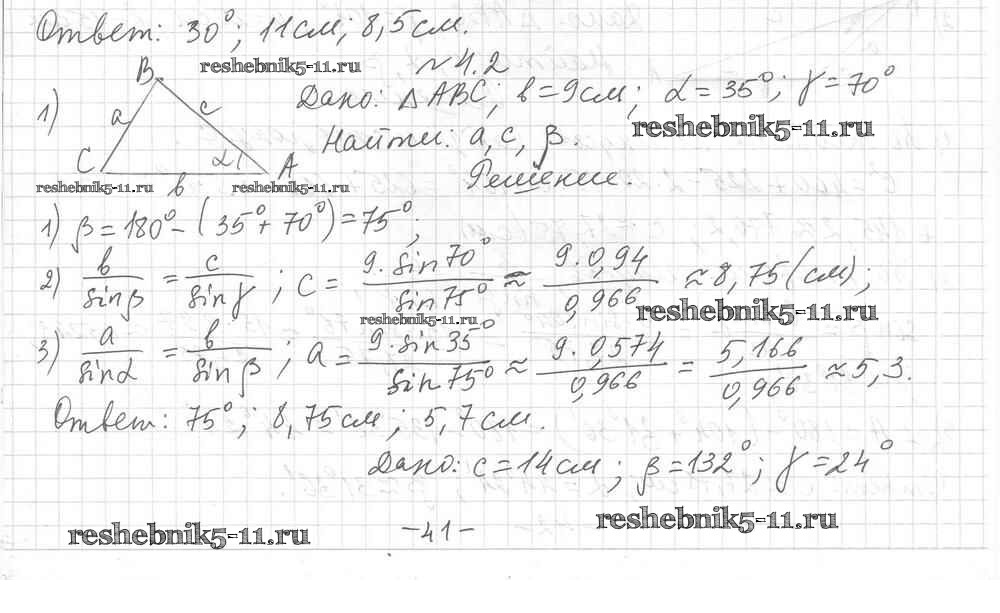 Ответ: 30°; 11см; 8,5см.
reshebnik5-11.ru
№4.2
1)
B
a
c
C
α
A
b
reshebnik5-11.ru
reshebnik5-11.ru
Дано: △ABC; b=9см; α=35°; γ=70°
reshebnik5-11.ru
Найти: a, c, β.
Решение.
1) β=180°-(35°+70°)=75°;
2) b/sinβ = c/sinγ; c = 9·sin70°/sin75° ≈ 9·0,94/0,966 ≈ 8,75(см);
reshebnik5-11.ru
reshebnik5-11.ru
3) a/sinα = b/sinβ; a = 9·sin35°/sin75° ≈ 9·0,574/0,966 = 5,166/0,966 ≈ 5,3.
Ответ: 75°; 8,75см; 5,7см.
Дано: c=14см; β=132°; γ=24°
reshebnik5-11.ru
-41-
reshebnik5-11.ru